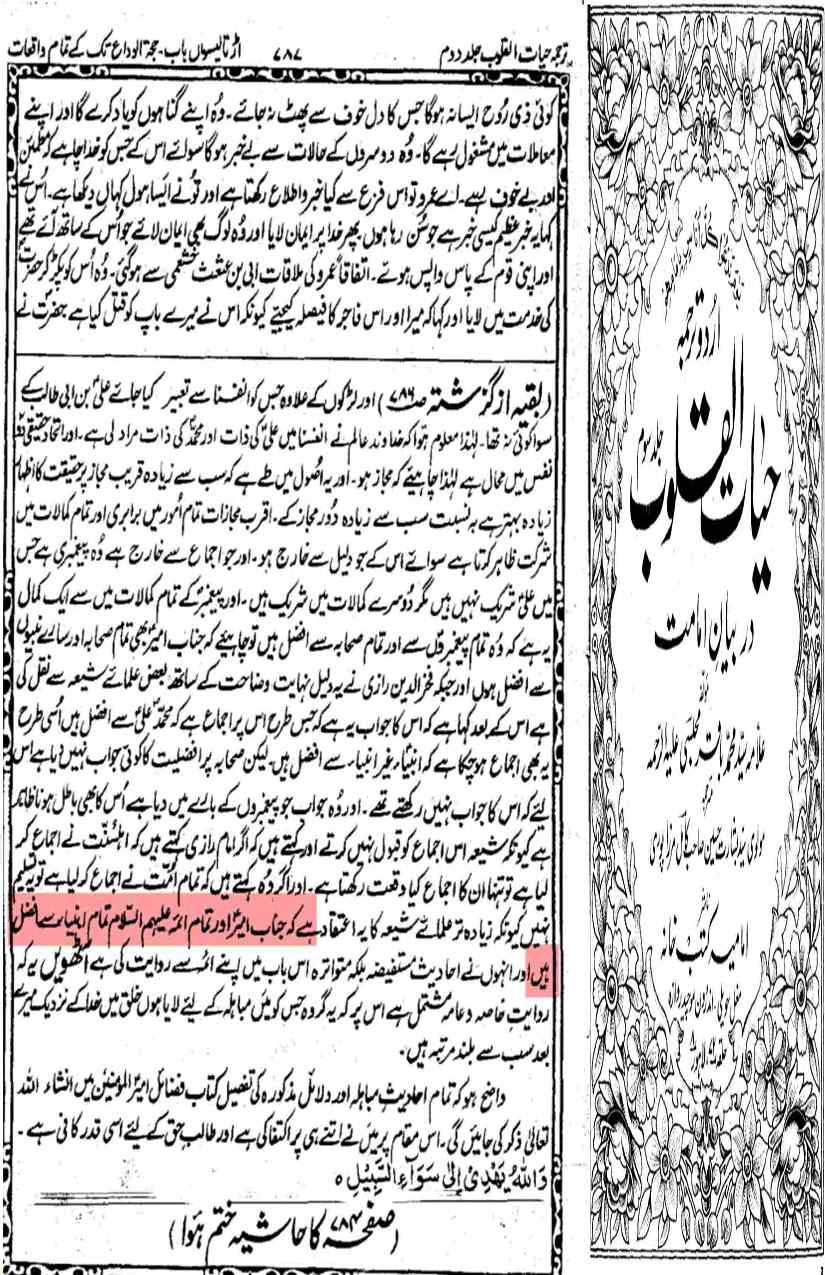 ترجمہ حیات القلوب جلد دوم ۷۸۷ اڑتالیسواں باب۔ حجۃ الوداع تک کے تمام واقعات
کوئی ذی رُوح ایسا نہ ہوگا جس کا دل خوف سے پھٹ نہ جائے۔ وُہ اپنے گناہوں کو یاد کرے گا اور اپنے
معاملات میں مشغول رہے گا۔ وُہ دوسروں کے حالات سے بے خبر ہوگا سوائے اس کے جس کو خدا چاہے کہ مطمئن
اور بے خوف رہے۔ اے عمرو تو اس فزع سے کیا خبر و اطلاع رکھتا ہے اور تُو نے ایسا ہول کہاں دیکھا ہے۔ اُس نے
کہا یہ خبرِ عظیم کیسی خبر ہے جو سُن رہا ہوں پھر خدا پر ایمان لایا اور وُہ لوگ بھی ایمان لائے جو اُس کے ساتھ آئے تھے
اور اپنی قوم کے پاس واپس ہوئے۔ اتفاقاً عمرو کی ملاقات ابی بن عثث خثعمی سے ہوگئی۔ وُہ اُس کو پکڑ کر حضرتؐ
کی خدمت میں لایا اور کہا کہ میرا اور اس فاجر کا فیصلہ کیجئے کیونکہ اس نے میرے باپ کو قتل کیا ہے حضرتؐ نے
(بقیہ از گزشتہ ص۷۸۶) اور لڑکوں کے علاوہ جس کو انفسنا سے تعبیر کیا جائے علیؑ بن ابی طالب کے
سوا کوئی نہ تھا۔ لہٰذا معلوم ہوا کہ خداوند عالم نے انفسنا میں علیؑ کی ذات اور محمدؐ کی ذات مراد لی ہے۔ اور اتحاد حقیقی دو
نفس میں محال ہے لہٰذا چاہیئے کہ مجاز ہو۔ اور یہ اصول میں طے ہے کہ سب سے زیادہ قریب مجاز پر حقیقت کا اظہار
زیادہ بہتر ہے بہ نسبت سب سے زیادہ دُور مجاز کے۔ اقرب مجازات تمام اُمور میں برابری اور تمام کمالات میں
شرکت ظاہر کرتا ہے سوائے اس کے جو دلیل سے خارج ہو۔ اور جو اجماع سے خارج ہے وُہ پیغمبری ہے جس
میں علیؑ شریک نہیں ہیں مگر دُوسرے کمالات میں شریک ہیں۔ اور پیغمبرؐ کے تمام کمالات میں سے ایک کمال
یہ ہے کہ وُہ تمام پیغمبروں سے اور تمام صحابہ سے افضل ہیں تو چاہیئے کہ جناب امیرؑ بھی تمام صحابہ اور سارے نبیوں
سے افضل ہوں اور جبکہ فخر الدین رازی نے یہ دلیل نہایت وضاحت کے ساتھ بعض علمائے شیعہ سے نقل کی
ہے اس کے بعد کہا ہے کہ اس کا جواب یہ ہے کہ جس طرح اس پر اجماع ہے کہ محمدؐ علیؑ سے افضل ہیں اُسی طرح
یہ بھی اجماع ہو چکا ہے کہ انبیاء غیر انبیاء سے افضل ہیں۔ لیکن صحابہ پر افضلیت کا کوئی جواب نہیں دیا ہے اس
لئے کہ اس کا جواب نہیں رکھتے تھے۔ اور وُہ جواب جو پیغمبروں کے بارے میں دیا ہے اُس کا بھی باطل ہونا ظاہر
ہے کیونکہ شیعہ اس اجماع کو قبول نہیں کرتے اور کہتے ہیں کہ اگر امام رازی کہتے ہیں کہ اہلسُنّت نے اجماع کر
لیا ہے تو تنہا ان کا اجماع کیا وقعت رکھتا ہے۔ اور اگر وُہ کہتے ہیں کہ تمام اُمّت نے اجماع کر لیا ہے تو یہ تسلیم
نہیں کیونکہ زیادہ تر علمائے شیعہ کا یہ اعتقاد ہے کہ جناب امیرؑ اور تمام ائمہ علیہم السّلام تمام انبیاء سے افضل
ہیں اور انہوں نے احادیث مستفیضہ بلکہ متواترہ اس باب میں اپنے ائمہ سے روایت کی ہے آٹھویں یہ کہ
روایتِ خاصہ و عامہ مشتمل ہے اس پر کہ یہ گروہ جس کو میں مباہلہ کے لئے لایا ہوں خلق میں خدا کے نزدیک میرے
بعد سب سے بلند مرتبہ ہیں۔
واضح ہو کہ تمام احادیث مباہلہ اور دلائل مذکورہ کی تفصیل کتاب فضائل امیر المؤمنین میں انشاء اللہ
تعالیٰ ذکر کی جائیں گی۔ اس مقام پر میں نے اتنے ہی پر اکتفا کی ہے اور طالبِ حق کے لئے اسی قدر کافی ہے۔
وَاللّٰہُ یَھْدِیْ اِلٰی سَوَآءِ السَّبِیْلِ ہ
(صفحہ ۷۸۴ کا حاشیہ ختم ہوا)
اردو ترجمہ
حیات القلوب
جلد سوم
در بیان امامت
مؤلفہ
علامہ سید محمد باقر مجلسی علیہ الرحمہ
مترجمہ
مولوی سید بشارت حسین صاحب کامل مرزا پوری
ناشر
امامیہ کتب خانہ
مغل حویلی، اندرون موچی دروازہ
حلقہ ۲۵ لاہور ۸